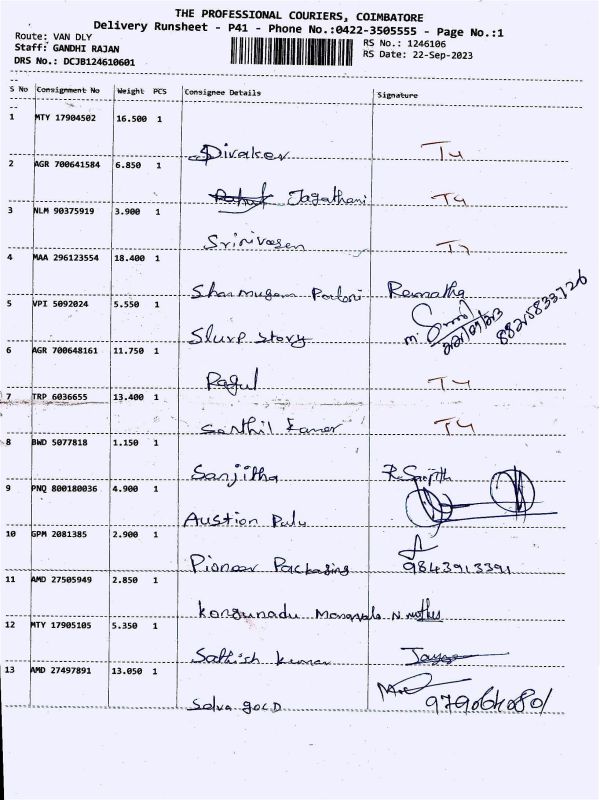 THE PROFESSIONAL COURIERS, COIMBATORE
Delivery Runsheet - P41 - Phone No.:0422-3505555 - Page No.:1
Route: VAN DLY
RS No.: 1246106
Staff: GANDHI RAJAN
RS Date: 22-Sep-2023
DRS No.: DCJB124610601
S No Consignment No Weight PCS Consignee Details Signature
1 MTY 17904502 16.500 1
Divaker
2 AGR 700641584 6.850 1
Jagathani
3 NLM 90375919 3.900 1
Srinivasan
4 MAA 296123554 18.400 1
Shanmugam
5 VPI 5092024 5.550 1
Slurp Story 22/09/23 8825833726
6 AGR 700648161 11.750 1
Ragul
7 TRP 6036655 13.400 1
Santhil Kumar
8 BWD 5077818 1.150 1
Sanjitha
9 PNQ 800180036 4.900 1
Austion
10 GPM 2081385 2.900 1
Pioneer Packaging 9843913391
11 AMD 27505949 2.850 1
Kongunadu
12 MTY 17905105 5.350 1
Sathish Kumar
13 AMD 27497891 13.050 1
Selva GOLD